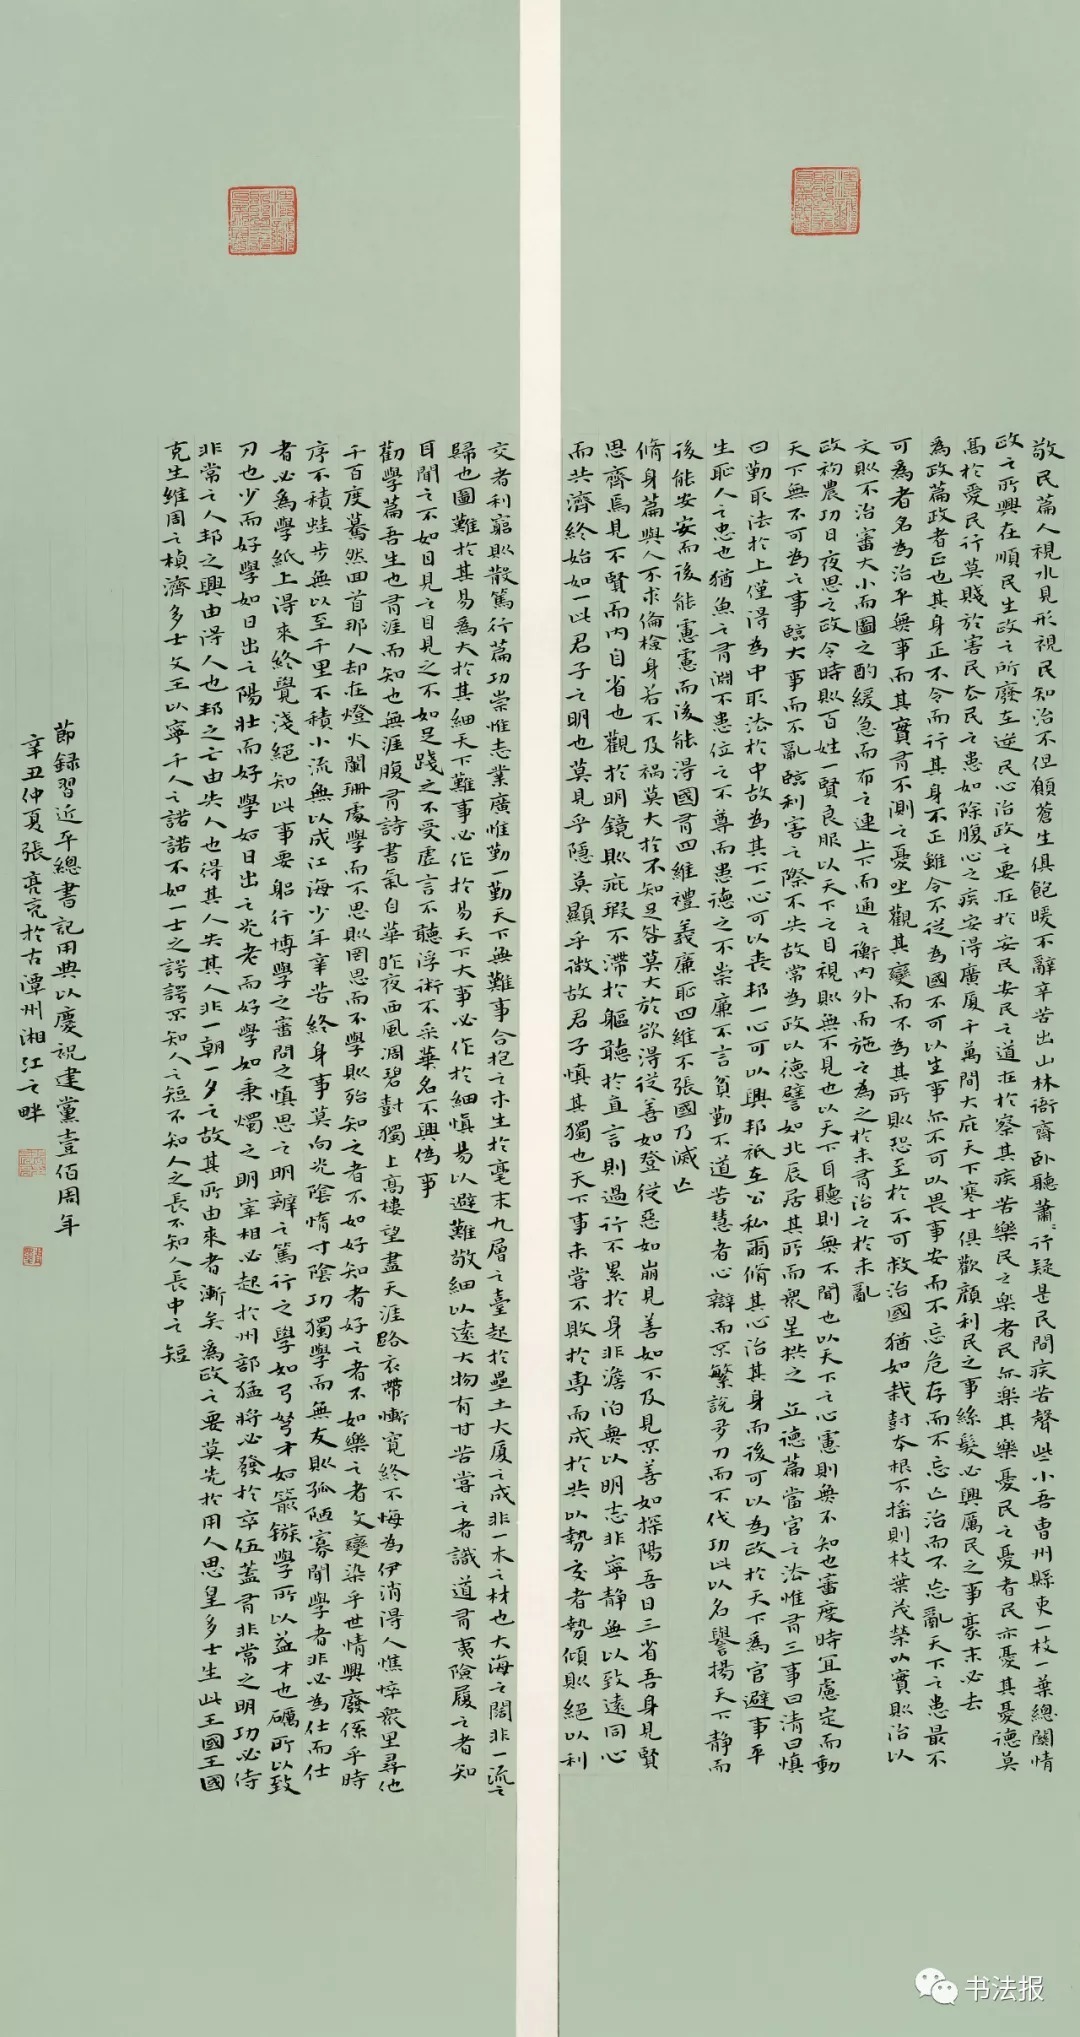 敬民篇人視水見形視民知治不但願蒼生俱飽暖不辭辛苦出山林衙齋卧聽蕭〻竹疑是民間疾苦聲些小吾曹州縣吏一枝一葉總關情
政之所興在順民生政之所廢在逆民心治政之要在於安民安民之道在於察其疾苦樂民之樂者民亦樂其樂憂民之憂者民亦憂其憂德莫
高於愛民行莫賤於害民去民之患如除腹心之疾安得廣厦千萬間大庇天下寒士俱歡顏利民之事絲髮必興厲民之事豪末必去
為政篇政者正也其身正不令而行其身不正雖令不從為國不可以生事亦不可以畏事安而不忘危存而不忘亡治而不忘亂天下之患最不
可為者名為治平無事而其實有不測之憂坐觀其變而不為其所則恐至於不可救治國猶如栽封本根不搖則枝葉茂榮以實則治以
文則不治審大小而圖之酌緩急而布之連上下而通之衡內外而施之為之於未有治之於未亂
政初農功日夜思之政令時則百姓一賢良服以天下之目視則無不見也以天下耳聽則無不聞也以天下之心慮則無不知也審度時宜慮定而動
天下無不可為之事臨大事而不亂臨利害之際不失故常為政以德譬如北辰居其所而眾星拱之 立德篇當官之法惟有三事曰清曰慎
曰勤取法於上僅得為中取法於中故為其下一心可以喪邦一心可以興邦祇在公私爾脩其心治其身而後可以為政於天下為官避事平
生恥人之忠也猶魚之有淵不患位之不尊而患德之不崇廉不言貧勤不道苦慧者心辯而不繁說多力而不伐功此以名譽揚天下靜而
後能安安而後能慮慮而後能得國有四維禮義廉恥四維不張國乃滅亡
脩身篇與人不求備檢身若不及禍莫大於不知足咎莫大於欲得從善如登從惡如崩見善如不及見不善如探陽吾日三省吾身見賢
思齊焉見不賢而內自省也觀於明鏡則疵瑕不滯於軀聽於直言則過行不累於身非澹泊無以明志非寧靜無以致遠同心
而共濟終始如一此君子之明也莫見乎隱莫顯乎微故君子慎其獨也天下事未嘗不敗於專而成於共以勢交者勢傾則絕以利
交者利窮則散篤行篇功崇惟志業廣惟勤一勤天下無難事合抱之木生於毫末九層之臺起於壘土大厦之成非一木之材也大海之闊非一流之
歸也圖難於其易為大於其細天下難事必作於易天下大事必作於細慎易以避難敬細以遠大物有甘苦嘗之者識道有夷險履之者知
耳聞之不如目見之目見之不如足踐之不受虛言不聽浮術不采華名不興偽事
勸學篇吾生也有涯而知也無涯腹有詩書氣自華昨夜西風凋碧封獨上高樓望盡天涯路衣帶漸寬終不悔為伊消得人憔悴眾里尋他
千百度驀然回首那人却在燈火闌珊處學而不思則罔思而不學則殆知之者不如好知者好之者不如樂之者文變染乎世情興廢係乎時
序不積蛙步無以至千里不積小流無以成江海少年辛苦終身事莫向光陰惰寸陰功獨學而無友則孤陋寡聞學者非必為仕而仕
者必為學紙上得來終覺淺絕知此事要躬行博學之審問之慎思之明辨之篤行之學如弓弩才如箭鏃學所以益才也礪所以致
刀也少而好學如日出之陽壯而好學如日出之光老而好學如秉燭之明宰相必起於州部猛將必發於卒伍蓋有非常之明功必侍
非常之人邦之興由得人也邦之亡由失人也得其人失其人非一朝一夕之故其所由來者漸矣為政之要莫先於用人思皇多士生此王國王國
克生維周之楨濟多士文王以寧千人之諾諾不如一士之諤諤不知人之短不知人之長不知人長中之短
節録習近平總書記用典以慶祝建黨壹佰周年
辛丑仲夏張亮亮於古潭州湘江之畔
书法报